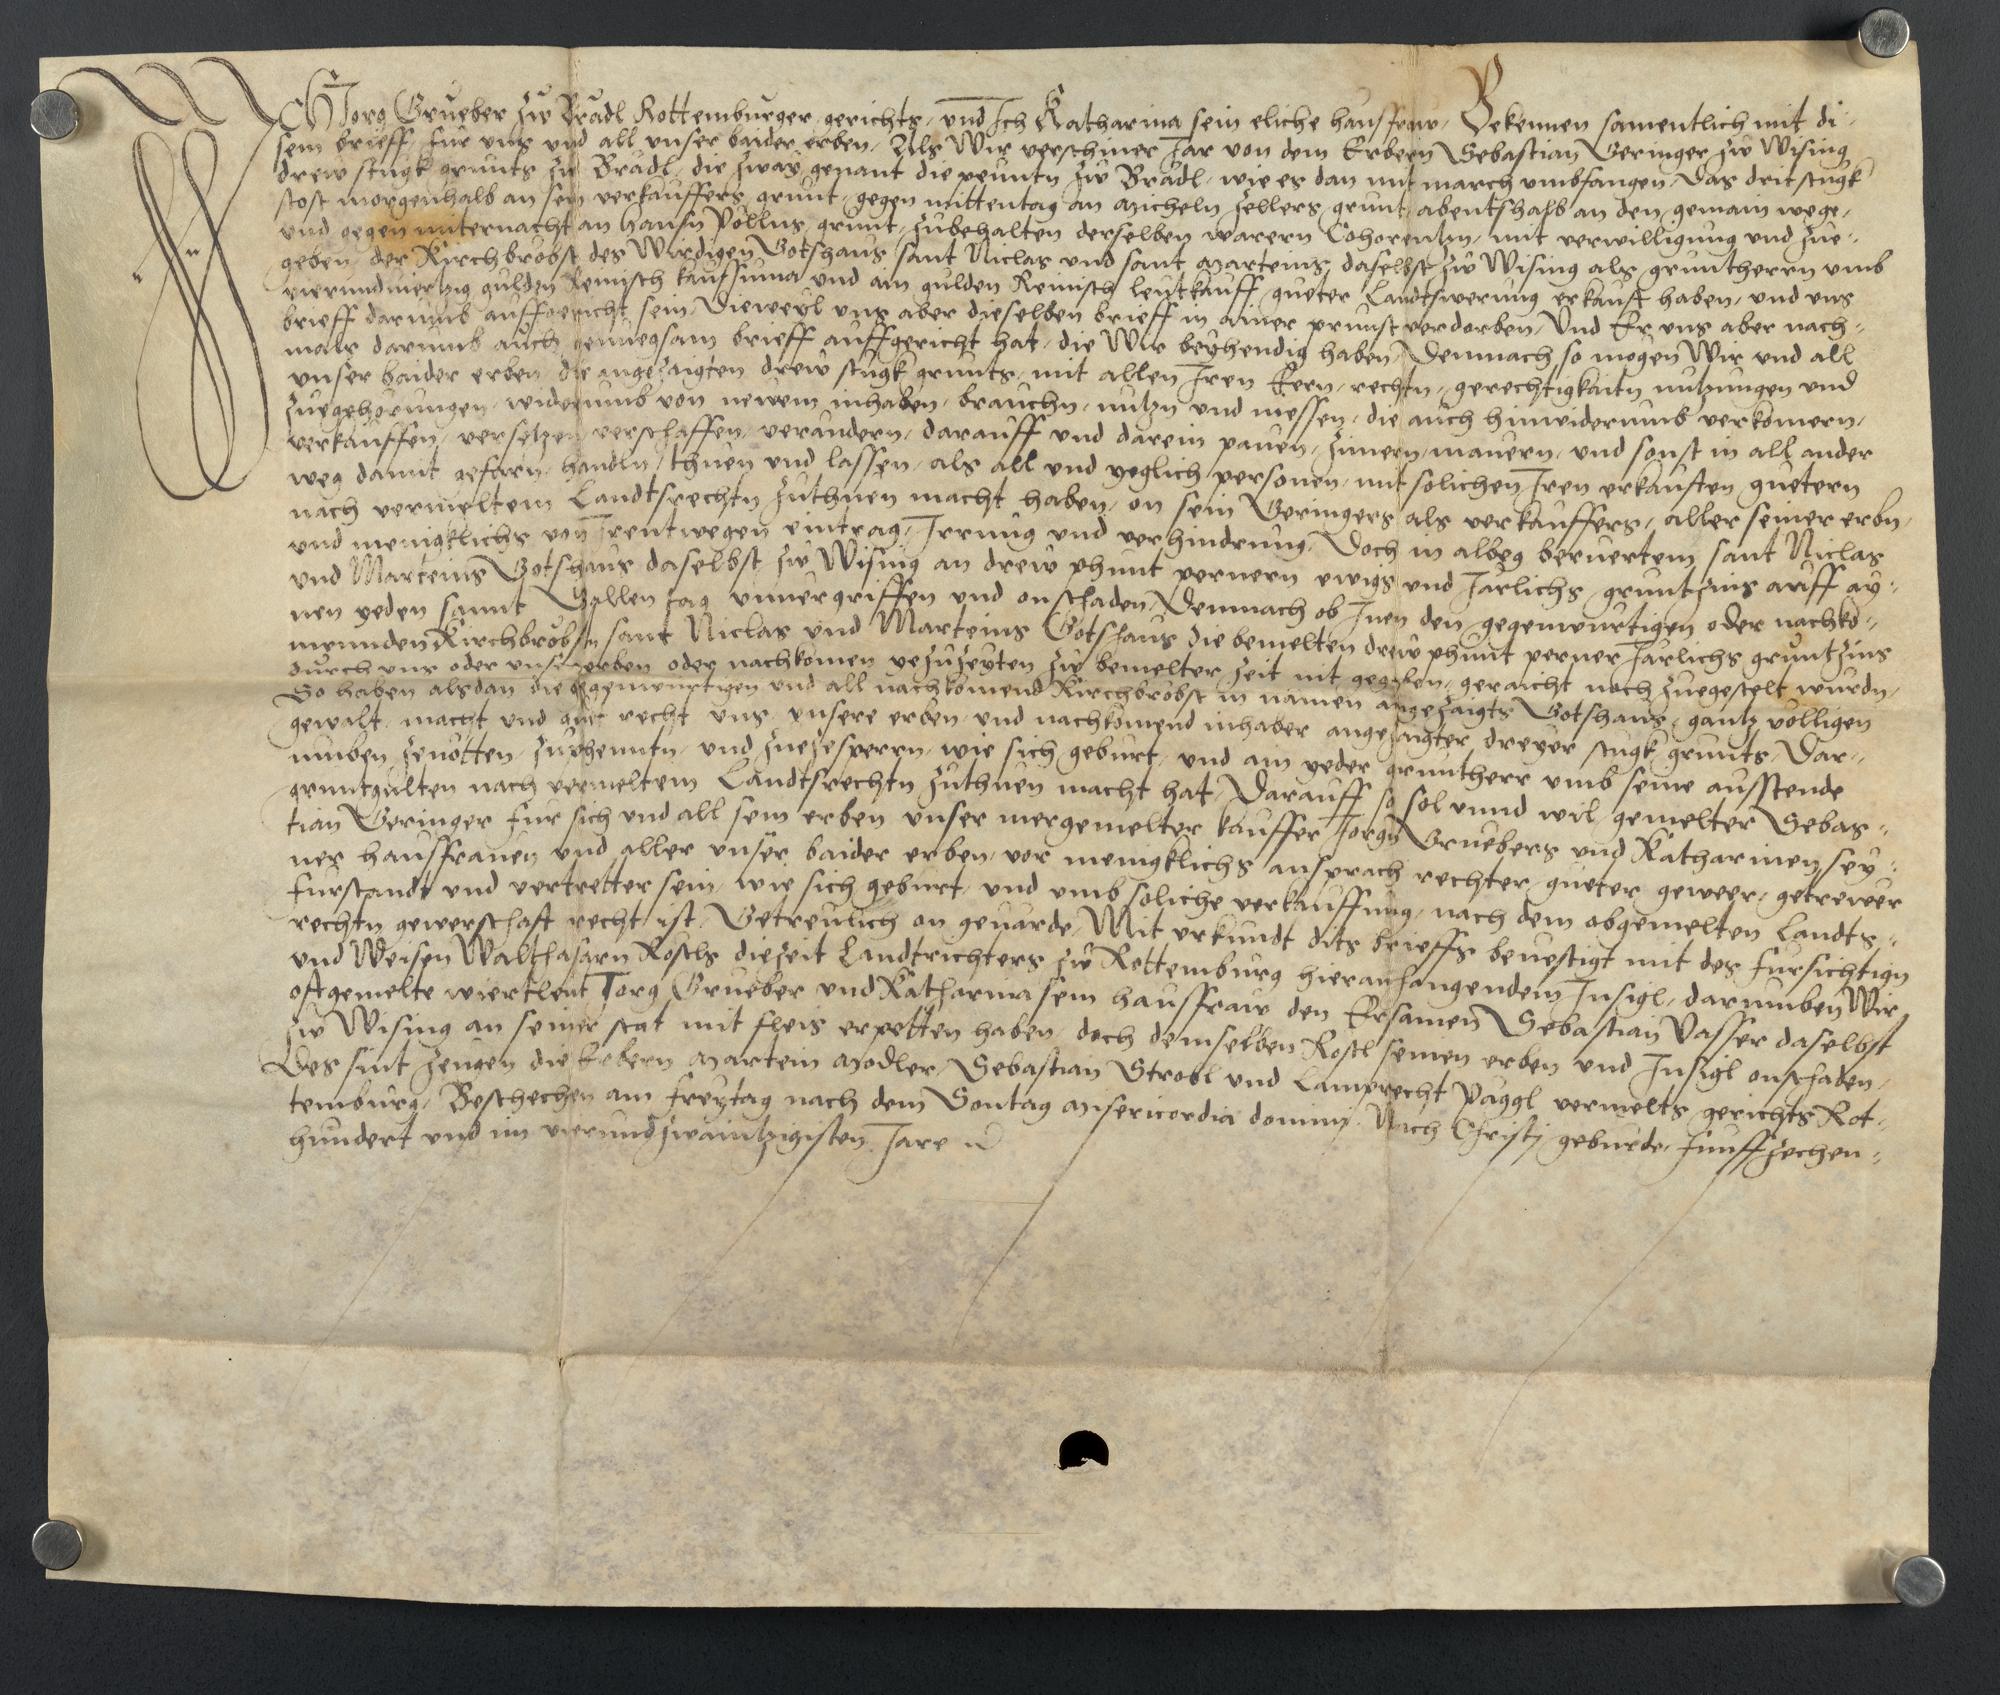 ICH Jorg Grueber zw Brädl Rottemburger gerichts, und Ich Katharina sein eliche hausfraw, Bekennen samentlich mit di-
sem brieff, für uns und all unser baider erben, Als Wir verschiner Jar von dem Erbern Sebastian Geringer zw Wising
drew stugk grunts zw Brädl, die zway genant die peuntn zw Brädl, wie es dan mit march umbfangen, Das drit stugk
stost morgenhalb an sein verkauffers grunt, gegen mittentag an Micheln Zellers grunt, abentshalb an den gemain wege,
und gegen miternacht an Hansn Pöllns grunt, zubehalten derselben warern Cohorentzn, mit verwilligung und zue-
geben der Kirchbröbst des Wirdigen Gotshaus sant Niclas und sant Marteins daselbst zw Wising als gruntherrn umb
vierundviertzig gulden Reinisch kaufsuma und ain gulden Reinisch leutkauff gueter Landtswerung erkauft haben, und uns
brieff darumb auffgericht sein, Dieweyl uns aber dieselben brieff in ainer prunst verdorben, Und Er uns aber nach-
mals darumb auch genuegsam brieff auffgericht hat, die Wir beyhendig haben, Demnach so mogen Wir und all
unser baider erben, die angezaigten drew stugk grunts, mit allen Iren Eern, rechtn, gerechtigkaitn nutzungen und
zuegehorungen, widerumb von newem inhaben, brauchn, nutzn und niessen, die auch hinwiderumb verkomern,
verkauffen, versetzen, verschaffen, verandern, darauff und darein pauen, zimern, mauern, und sonst in all ander
weg damit gefarn, handln, thuen und lassen, als all und yeglich personen, mit solichen Iren erkauften guetern
nach vermeltem Landtsrechtn zuthuen macht haben, on sein Geringers als verkauffers, aller seiner erbn,
und menigklichs von Irentwegen eintrag, Irrung und verhindrung, Doch in albeg beruertem sant Niclas
und Marteins Gotshaus daselbst zw Wising an drew phunt pernern ewigs und Järlichs gruntzins auff ay-
nen yeden sannt Gallen tag unvergriffen und on schaden, Demnach ob Inen den gegenwurtigen oder nachko-
menden Kirchbröbstn sant Niclas und Marteins Gotshaus die bemelten drew phunt perner Järlichs gruntzins
durch uns oder unser erben oder nachkomen yezuzeyten zw bemelter zeit nit gegeben, geraicht noch zuegestelt wurdn,
So haben alsdan die gegenwurtigen und all nachkomend Kirchbröbst in namen angezaigts Gotshaus, gantz volligen
gewalt, macht und gut recht uns, unsere erben und nachkomend inhaber angezaigter dreyer stugk grunts, Dar-
umben zenötten, zuphenntn, und zuezesperrn, wie sich geburt, und am yeder gruntherr umb seine ausstende
gruntgülten nach vermeltem Landtsrechtn zuthuen macht hat, Darauff so sol unnd wil gemelter Sebas-
tian Geringer fur sich und all sein erben unser mergemelter kauffer Jorgn Gruebers und Katharinen sey-
ner hausfrauen und aller unser baider erben, vor menigklichs ansprach rechter gueter geweer, getrewer
furstandt und vertretter sein, wie sich geburt, und umb soliche verkauffung, nach dem obgemelten Landts-
rechtn gewerschaft recht ist, Getreulich on gevärde, Mit urkundt dits brieffs bevestigt mit des fursichtign
und Weisen Walthasarn Rösls diezeit Landtrichters zw Rottemburg hieranhangendem Insigl, darumben Wir
oftgemelte wiertlent Jorg Grueber und Katharina sein hausfraw den Ersamen Sebastian Passer daselbst
zw Wising an seiner stat mit fleis erpetten haben, doch demselben Rösl seinen erben und Insigl onschaden,
Des sint zeugen die Erbern Martein Modler, Sebastian Strobl und Lamprecht Päggl vermelts gerichts Rot-
temburg, Beschechen am freytag nach dem Sontag Misericordia domini, Nach Christi geburde, funffzechen-
hundert und im vierundzwaintzigisten Jare